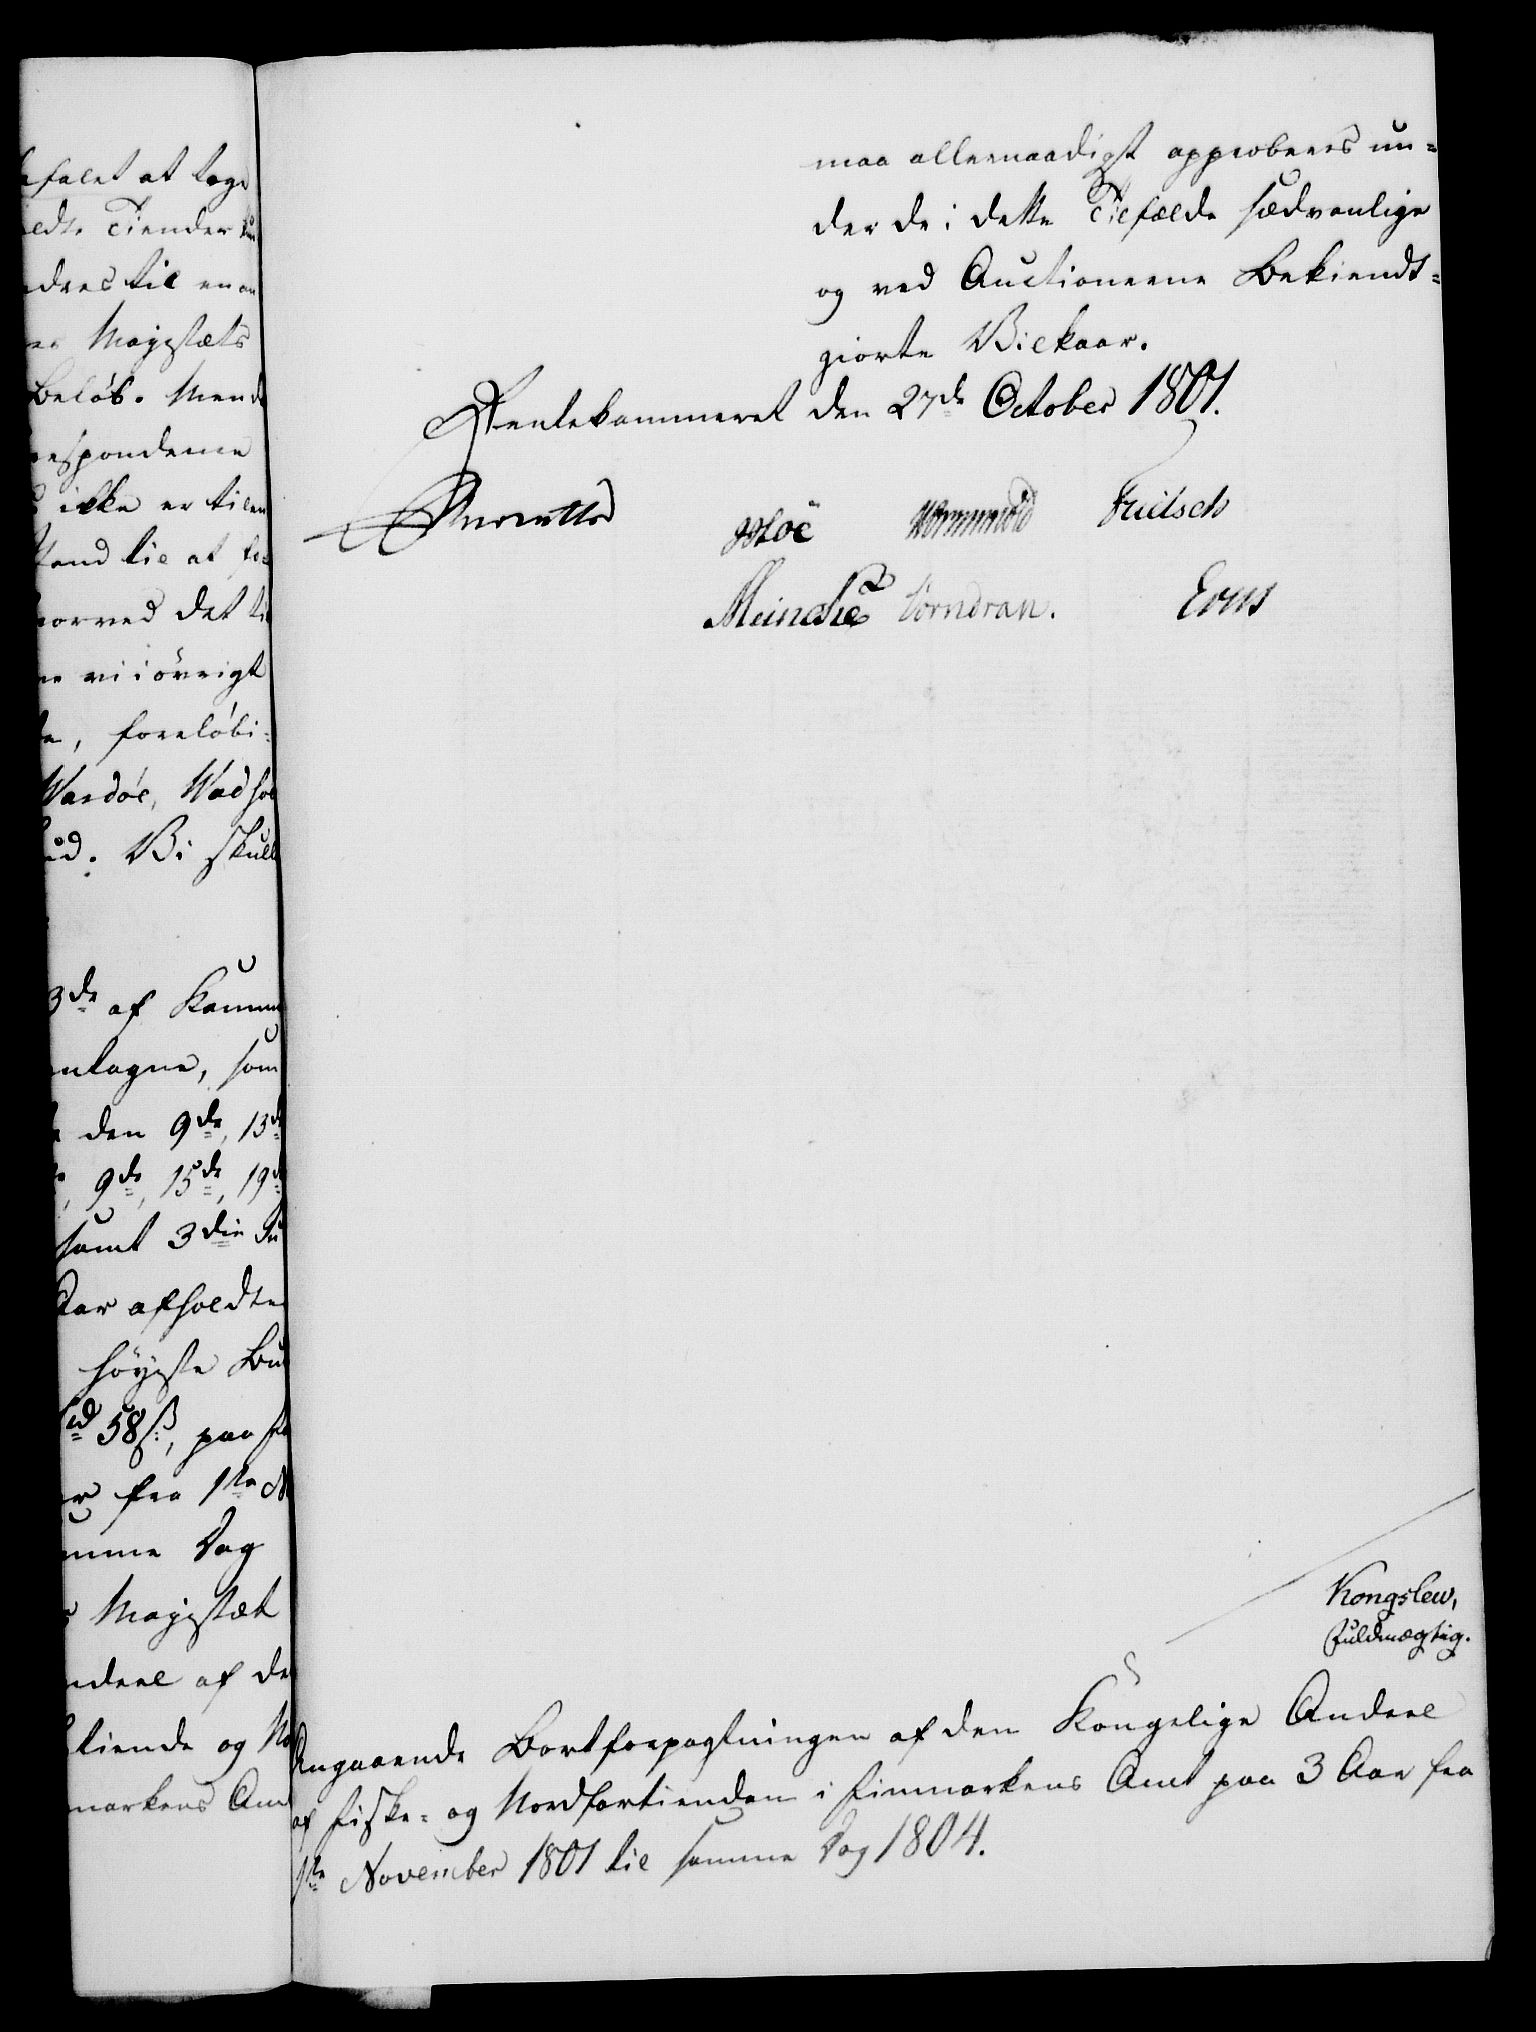 falet at tage
eldte Tiender
edres til en an
er Majestæts
Beløb. Mend
responderne
ikke er tilen
tand til at
hvorved det
vi i øvrigt
foreløbi-
Wardøe, Wads
ud. Vi skull
3de af Kamme
antagne, som
den 9de, 13de
9de, 15de, 19de
samt 3die Ju
Aar afholdte
høyeste Bu
58 ß, paa
fra 1ste N
amme Dag
Majestæt
ndeel af de
tiende og No
markens Am
maa allernaadigst approberes un-
der de i dette Tilfælde sædvanlige
og ved Auctionerne Bekiendt-
giorte Vilkaar.
Rentekammeret den 27de October 1801.
Reventlow
Wormskiold Fritsch
Meincke Vorndran.
Kongslew,
Fuldmægtig.
Angaaende Bortforpagtningen af den Kongelige Andeel
af Fiske- og Nordfartienden i Finmarkens Amt paa 3 Aar fra
1ste November 1801 til samme Dag 1804.